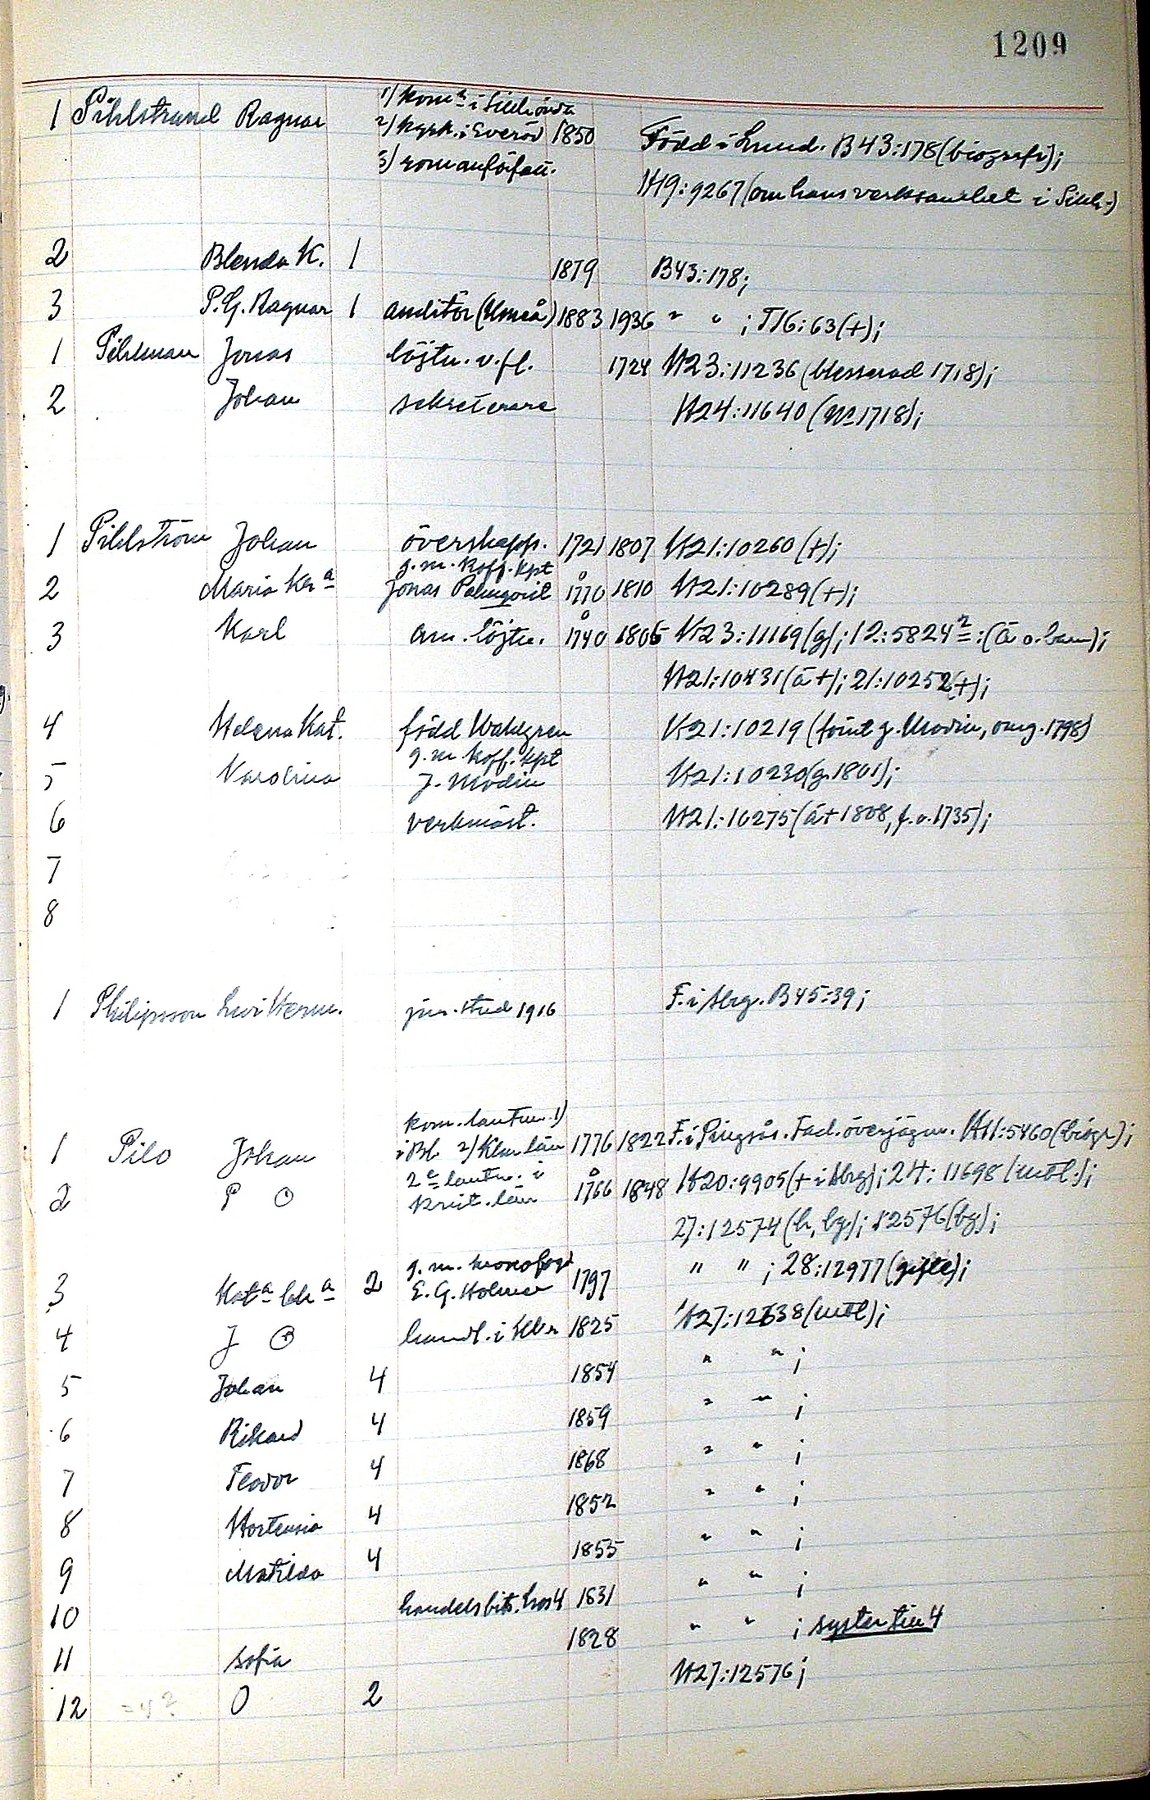 1209
1 Pihlstrand Ragnar 1) kom.r i Sillhövda 2) kyrk. i Everöd 3) romanförfatt. 1850 Född i Lund. B43:178 (biografi);
H9:9267 (om hans verksamhet i Sillh.)
2 Blenda K. 1 1879 B43:178;
3 P.G. Ragnar 1 auditör (Umeå) 1883 1936 " " ; T16:63 (+);
1 Pihlman Jonas löjtn. v. fl. 1724 H23:11236 (blesserad 1718);
2 Johan sekreterare H24:11640 (1718);
1 Pihlström Johan överskepp. 1721 1807 H21:10260 (+);
2 Maria Kr.a g. m. koff. kpt Jonas Palmqvist 1770 1810 H21:10289 (+);
3 Karl am. löjtn. 1740 1805 H23:11169 (g); 12:5824 : (ä o. barn);
H21:10431 (ä +); 21:10252 (+);
4 Helena Kat. född Wahlgren H21:10219 (förut g. Modin, omg. 1798)
5 Karolina g. m. koff. kpt J. Modin H21:10230 (g. 1801);
6 verkmäst. H21:10275 (ä + 1808, f. o. 1735);
7
8
1 Philipsson Levi Herm. jur. stud 1916 F. i Hbg. B45:39;
1 Pilo Johan kom. lantm. 1) i Bl. 2) Klm län 1776 1822 F. i Ringsås. Fad. överjägm. H11:5460 (biogr);
2 P O 2e lantm. i Krist. län 1766 1848 H20:9905 (+ i Hbg); 24:11698 (mtl.);
27:12574 (h, bg); 12576 (bg);
3 Kat.a Chr.a 2 g. m. kronofogd E. G. Holmer 1797 " " ; 28:12977 (gifte);
4 J O handl. i Kbr 1825 H27:12638 (mtl);
5 Johan 4 1854 " " ;
6 Rikard 4 1859 " " ;
7 Teodor 4 1868 " " ;
8 Hortensia 4 1852 " " ;
9 Matilda 4 1855 " " ;
10 handelsbitr. hos 4 1831 " " ;
11 Sofia 1828 " " ; syster till 4
12 = 4? O 2 H27:12576;